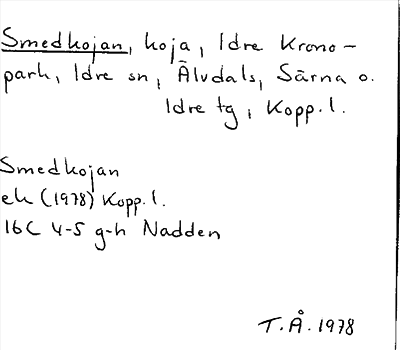 Smedkojan, koja, Idre Krono-
park, Idre sn, Älvdals, Särna o.
Idre tg, Kopp. l.
Smedkojan
ek (1978) Kopp. l.
16C 4-5 g-h Nadden
T.Å. 1978